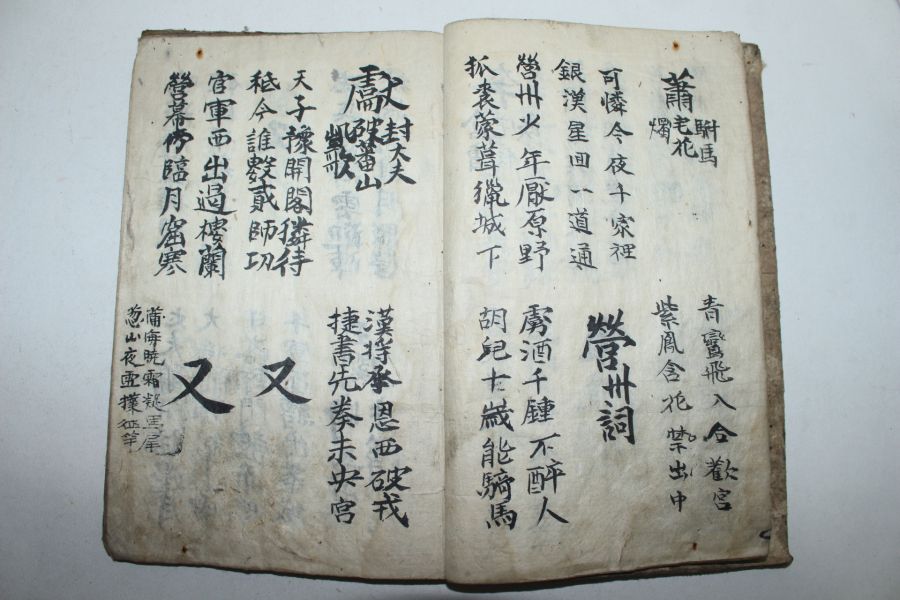 蕭駙馬宅花燭
青鸞飛入合歡宮
紫鳳含花禁出中
可憐今夜千家裡
銀漢星回一道通
營州詞
營州少年厭原野
狐裘蒙茸獵城下
虜酒千鍾不醉人
胡兒十歲能騎馬
獻封大夫破蕃山凱歌
漢將承恩西破戎
捷書先奏未央宮
天子豫開閣獜待
秪今誰數貳師功
又
官軍西出過樓蘭
營幕傍臨月窟寒
又
蒲海曉霜凝馬尾
葱山夜雪撲旌竿